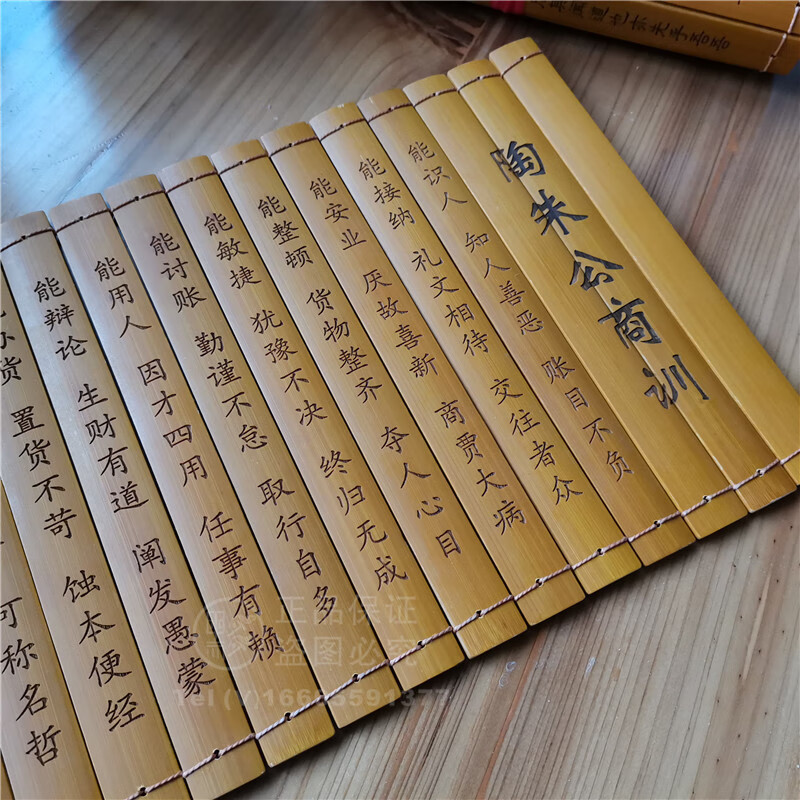 陶朱公商训
能识人 知人善恶 账目不负
能接纳 礼文相待 交往者众
能安业 厌故喜新 商贾大病
能整顿 货物整齐 夺人心目
能敏捷 犹豫不决 终归无成
能讨账 勤谨不怠 取行自多
能用人 因才四用 任事有赖
能辩论 生财有道 阐发愚蒙
办货 置货不苛 蚀本便经
可称名哲
正品保证
盗图必究
Tel (V)16665591377